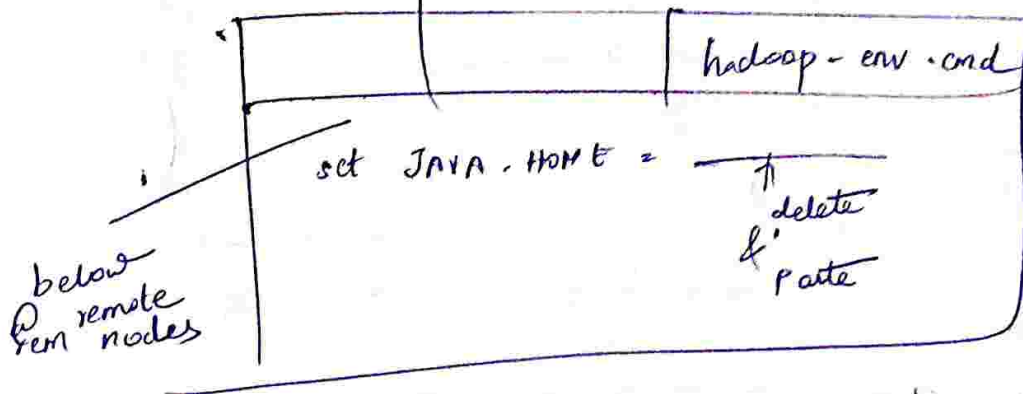 hadoop - env . cmd
set JAVA . HOME = ———
delete
&
paste
below
@rem remote
nodes